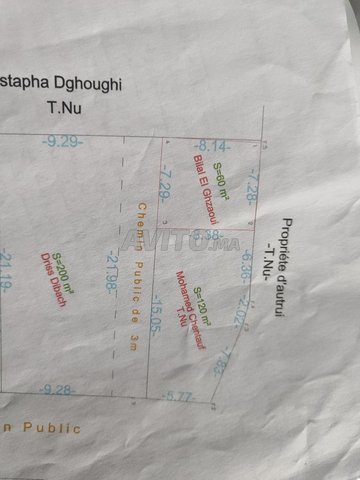 stapha Dghoughi
T.Nu
-9.29-
-8.14-
-7.29-
S=60 m²
Bilal El Ghzaoui
-7.28-
Propriéte d'autrui
-T.Nu-
Chemin Public de 3m
AVITO.MA
-21.19-
S=200 m²
Driss Dibach
-21.98-
-15.05-
S=120 m²
Mohamed Chentauf
T.Nu
-6.36-
-2.02-
-9.28-
-5.77-
n Public